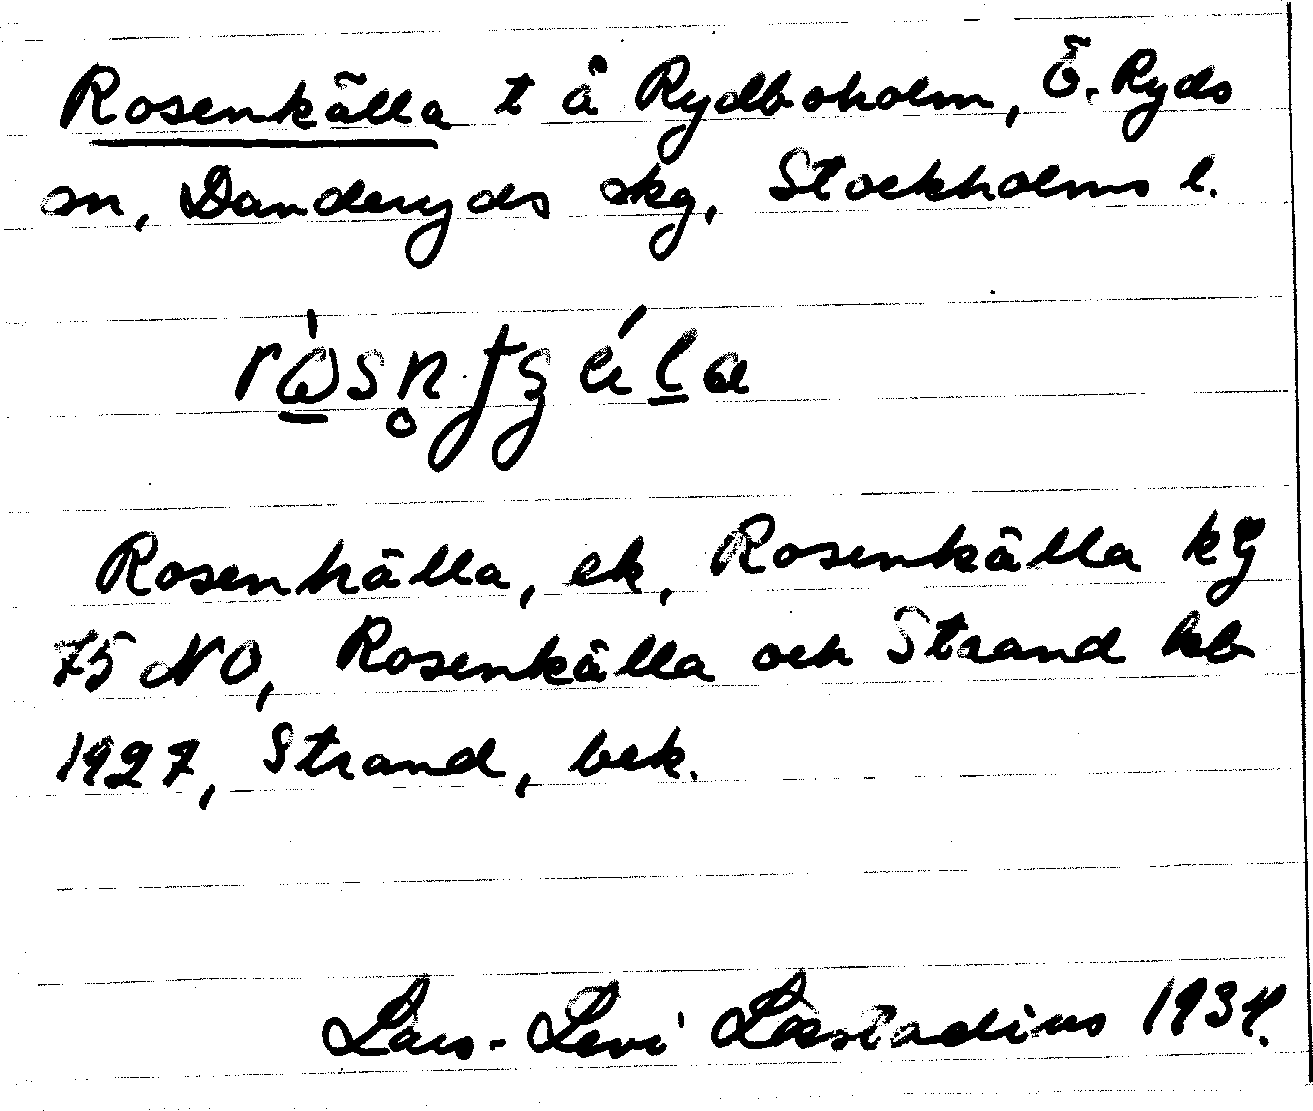 Rosenkälla t å Rydboholm, Ö. Ryds
sn, Danderyds skg, Stockholms l.
Rosenkälla, ek, Rosenkälla kg
75 NO, Rosenkälla och Strand hb
1927, Strand, bek.
Lars-Levi Læstadius 1934.